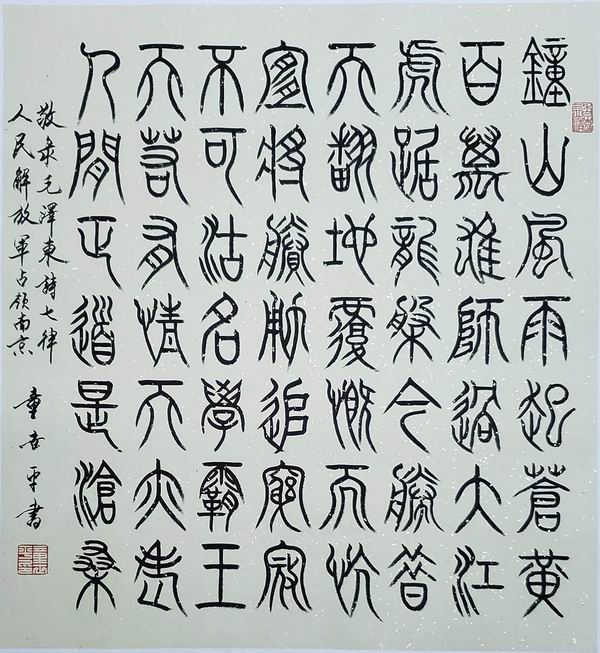 鐘山風雨起蒼黄
百萬雄師過大江
虎踞龍盤今勝昔
天翻地覆慨而忼
宜將賸勇追窮寇
不可沽名學霸王
天若有情天亦老
人間正道是滄桑
敬录毛澤東詩七律
人民解放軍占领南京 童世平書